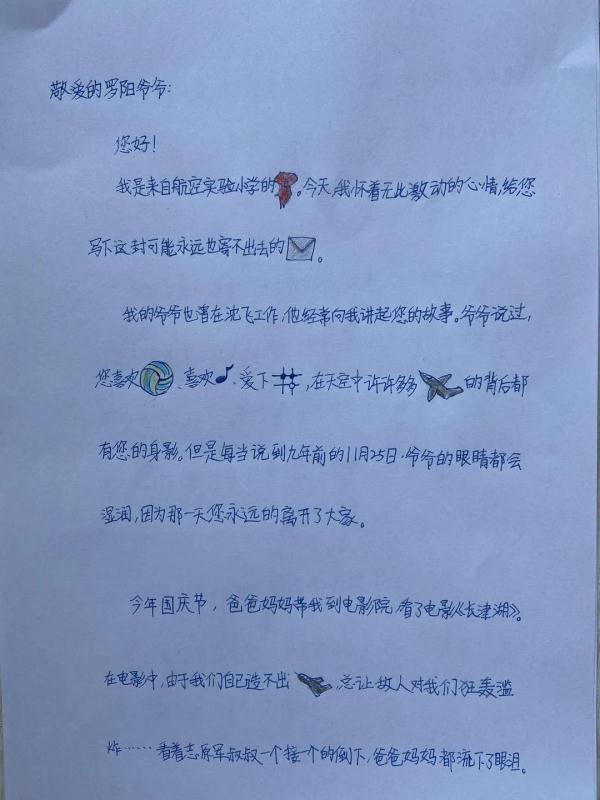 敬爱的罗阳爷爷:
您好!
我是来自航空实验小学的。今天,我怀着无比激动的心情,给您
写下这封可能永远也寄不出去的。
我的爷爷也曾在沈飞工作,他经常向我讲起您的故事。爷爷说过,
您喜欢、喜欢、爱下,在天空中许许多多的背后都
有您的身影。但是每当说到九年前的11月25日,爷爷的眼睛都会
湿润,因为那一天您永远的离开了大家。
今年国庆节,爸爸妈妈带我到电影院,看了电影《长津湖》。
在电影中,由于我们自己造不出,总让敌人对我们狂轰滥
炸……看着志愿军叔叔一个接一个的倒下,爸爸妈妈都流下了眼泪。